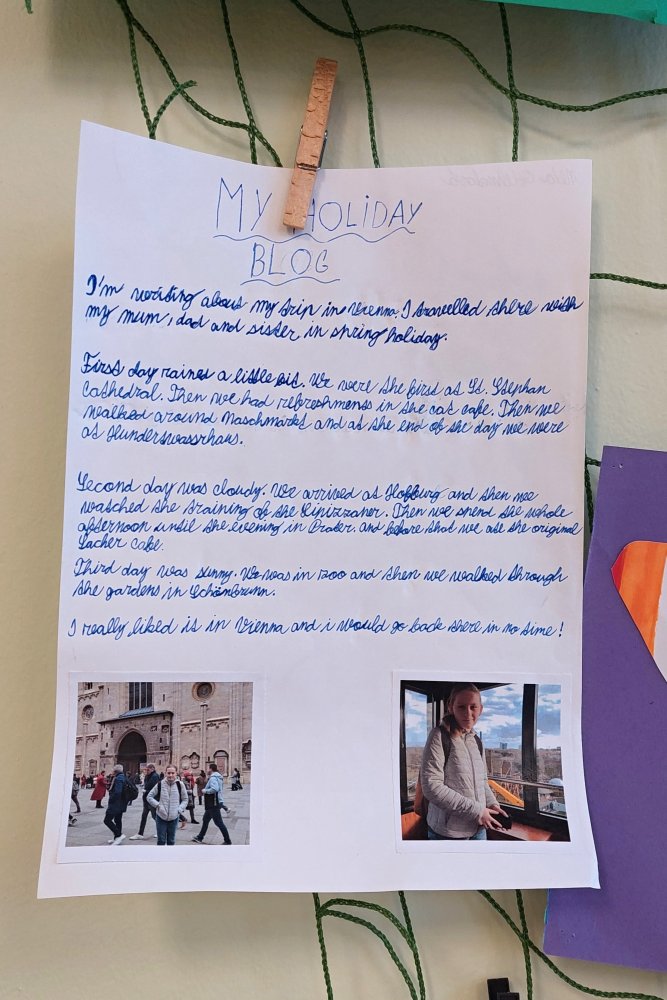 MY HOLIDAY
BLOG
I'm writing about my trip in Vienna. I travelled there with
my mum, dad and sister in spring holiday.
First day rained a little bit. We were the first at St. Stephan
Cathedral. Then we had refreshments in the cat cafe. Then we
walked around Naschmarkt and at the end of the day we were
at Hunderwassrhaus.
Second day was cloudy. We arrived at Hofburg and then we
watched the training of the Lipizzaner. Then we spend the whole
afternoon until the evening in Prater. and before that we ate the original
Sacher cake.
Third day was sunny. We was in zoo and then we walked through
the gardens in Schönbrunn.
I really liked it in Vienna and i would go back there in no time!